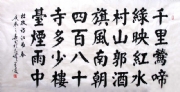 千里鶯啼
綠映紅水
村山郭酒
旗風南朝
四百八十
寺多少樓
臺煙雨中
杜牧詩江南春